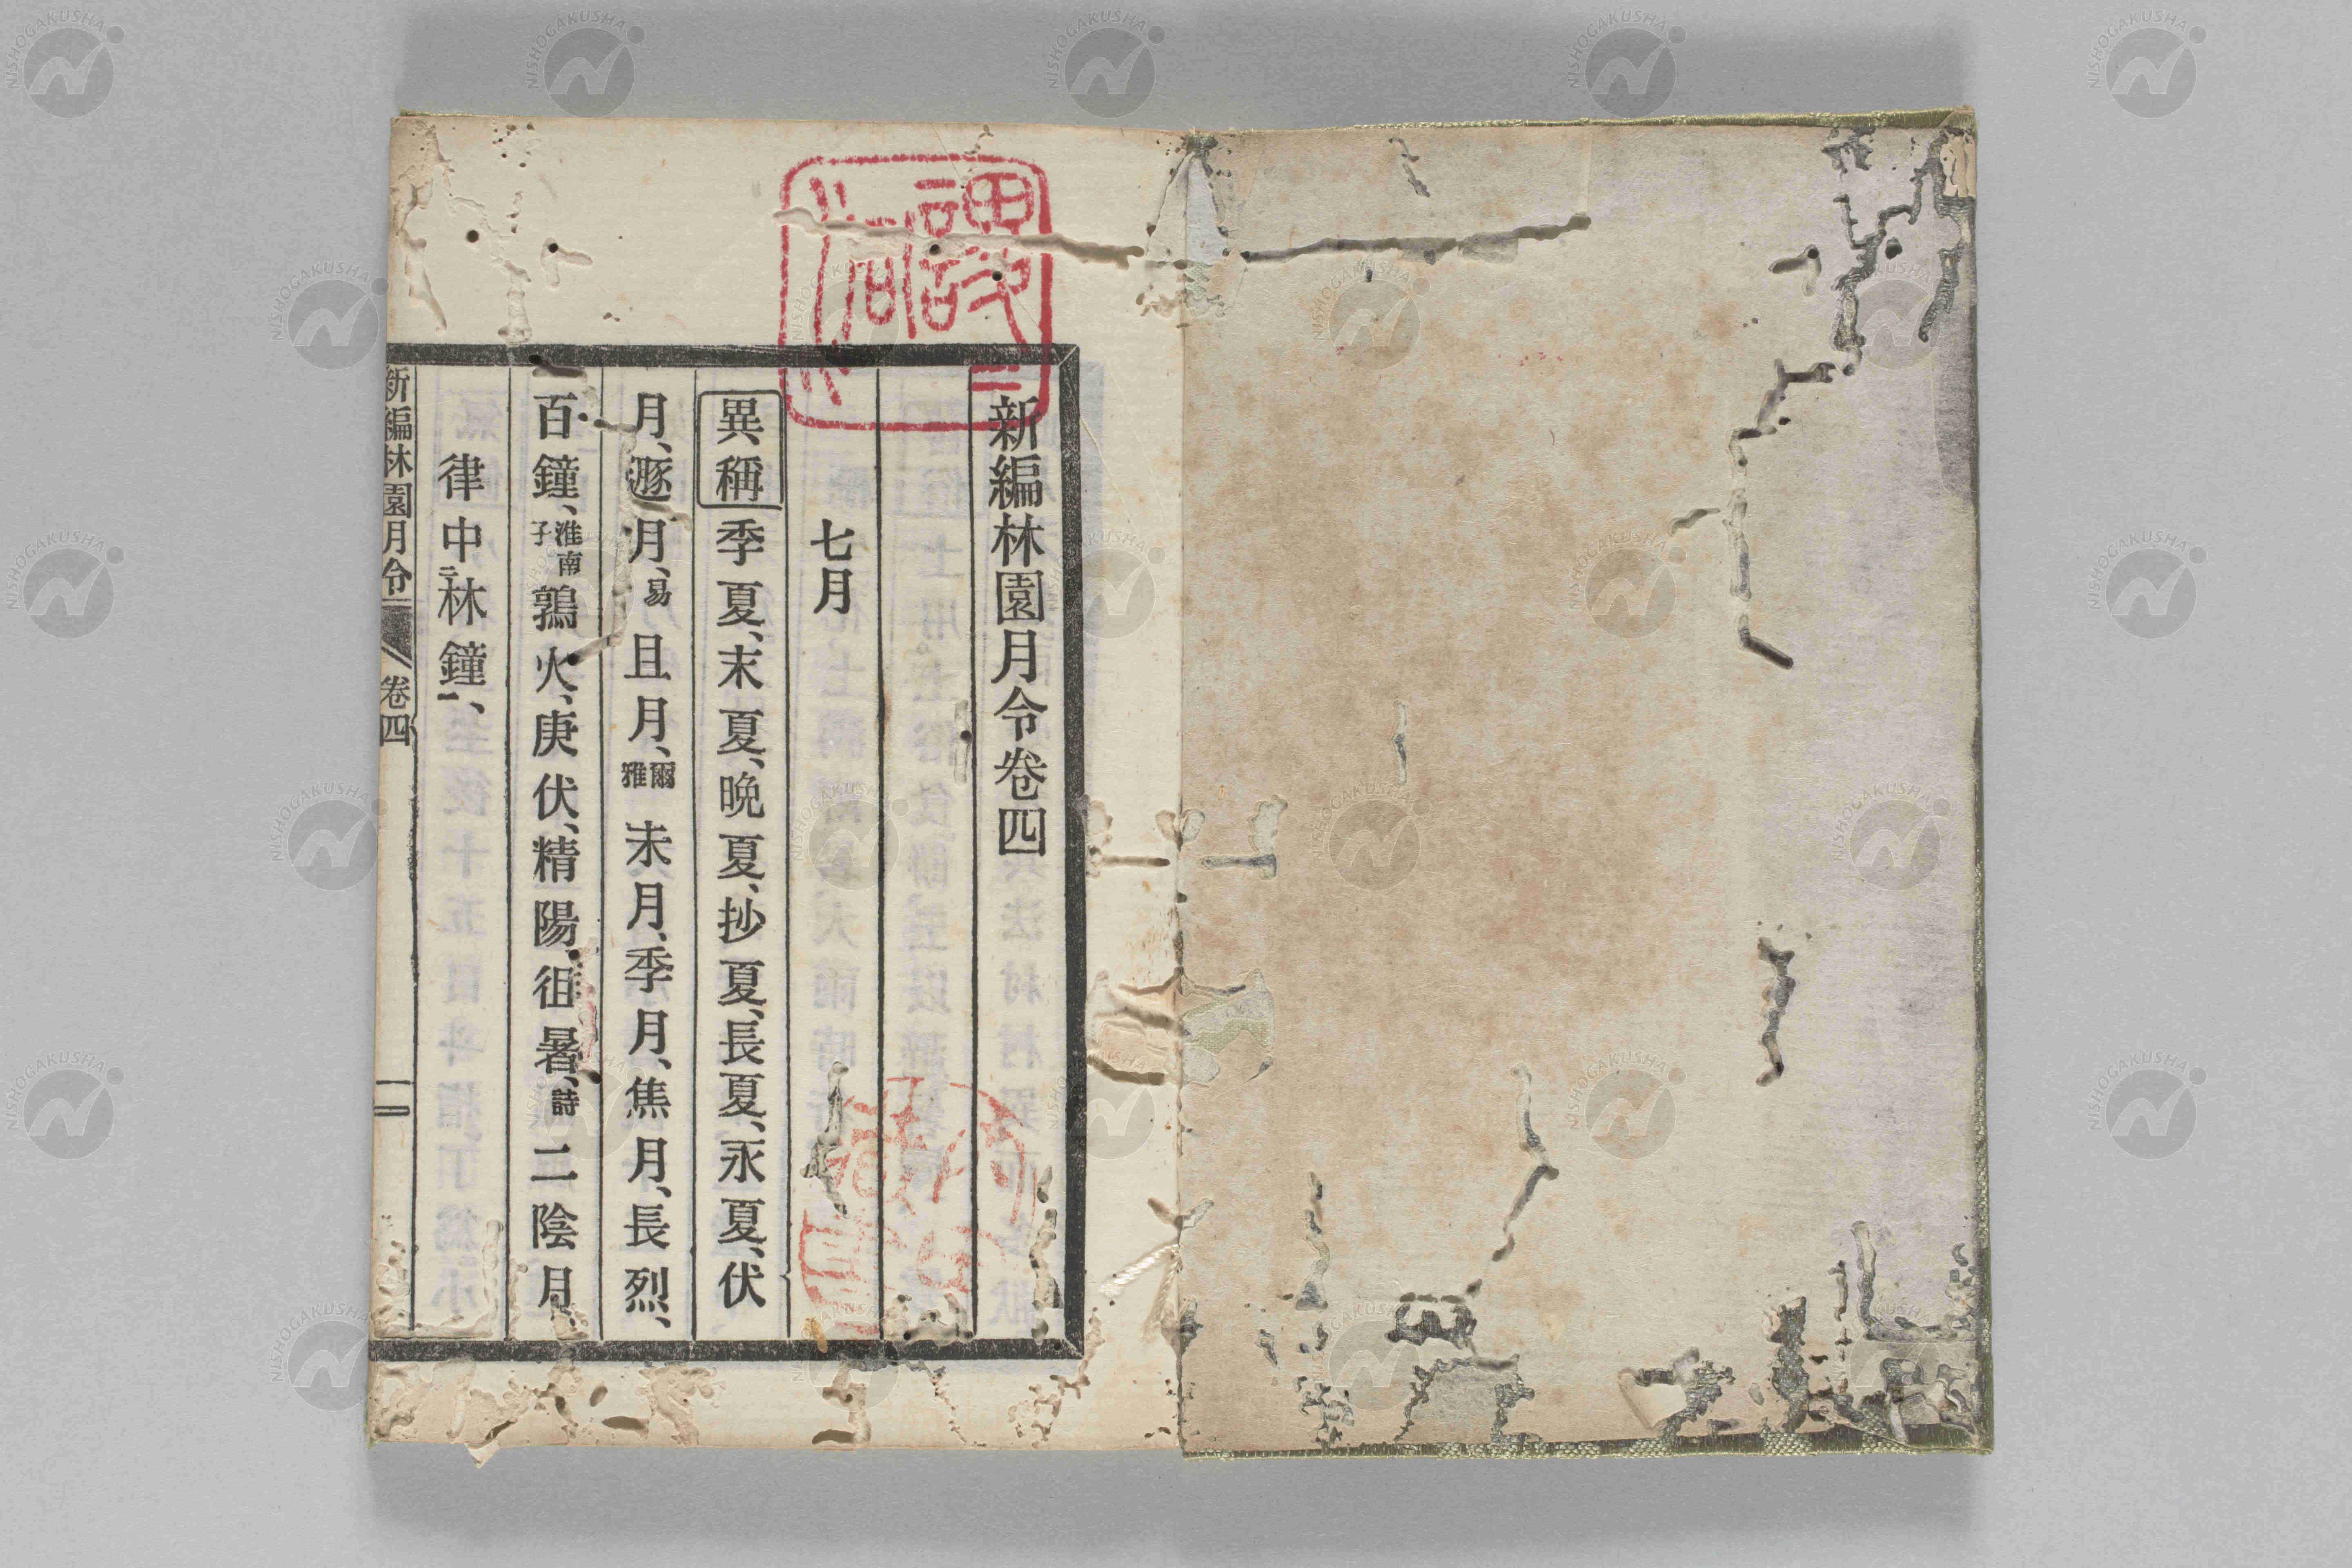 新編林園月令卷四
七月
異稱 季夏、末夏、晩夏、抄夏、長夏、永夏、伏
月、遯月、易 且月、爾雅 未月、季月、焦月、長烈、
百鐘、淮南子 鶉火、庚伏、精陽、徂暑、詩 二陰月、
律中二林鐘一、
新編林園月令 卷四 一
NISHOGAKUSHA